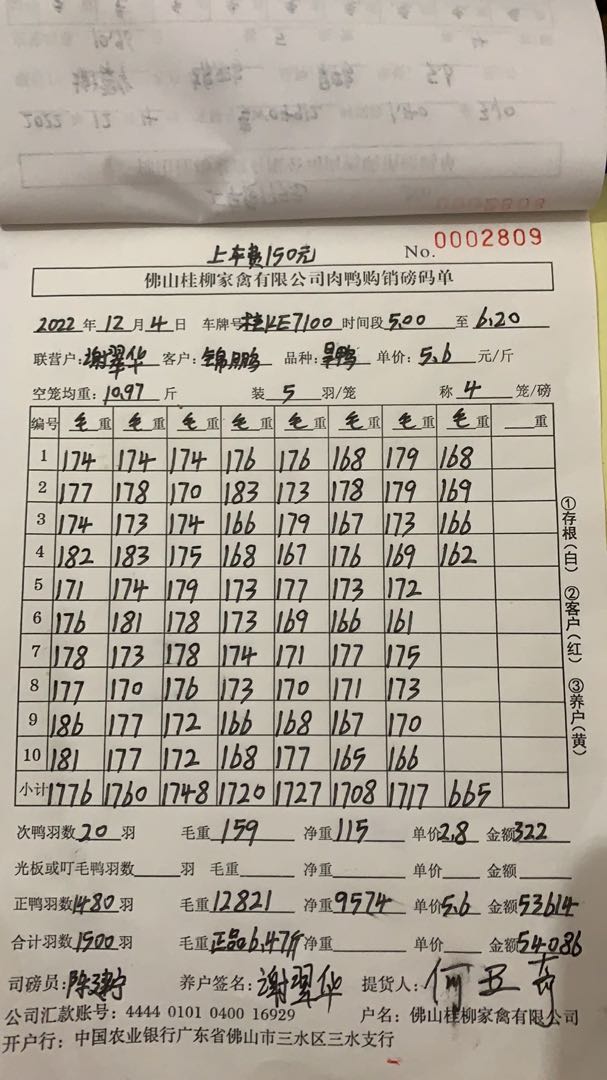 0002809
上车费150元 No. 0002809
佛山桂柳家禽有限公司肉鸭购销磅码单
2022年12月4日 车牌号:桂KE7100 时间段5:00至6:20
联营户:谢翠华 客户:锦鹏 品种: 单价:5.6元/斤
空笼均重:10.97斤 装5羽/笼 称4笼/磅
编号 毛重 毛重 毛重 毛重 毛重 毛重 毛重 毛重 重
1 174 174 174 176 176 168 179 168
2 177 178 170 183 173 178 179 169
3 174 173 174 166 179 167 173 166
4 182 183 175 168 167 176 169 162
5 171 174 179 173 177 173 172
6 176 181 178 173 169 166 161
7 178 173 178 174 171 177 175
8 177 170 176 173 170 171 173
9 186 177 172 166 168 167 170
10 181 177 172 168 177 165 166
小计 1776 1760 1748 1720 1727 1708 1717 665
次鸭羽数20羽 毛重159 净重115 单价2.8 金额322
光板或叮毛鸭羽数 羽 毛重 净重 单价 金额
正鸭羽数1480羽 毛重12821 净重9574 单价5.6 金额53614
合计羽数1500羽 毛重正品6.47斤 净重 单价 金额54086
司磅员: 养户签名:谢翠华 提货人:
公司汇款账号:4444 0101 0400 16929 户名:佛山桂柳家禽有限公司
开户行:中国农业银行广东省佛山市三水区三水支行
①存根(白) ②客户(红) ③养户(黄)